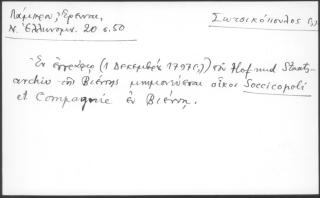 Λάμπρου, Ἔρευναι,
Ν. Ἑλληνομν. 20 σ. 50
Σωτσικόπουλος Γ.
Ἐν ἐγγράφῳ (1 Δεκεμβρ. 1797) τοῦ Hof und Staats-
archiv τῆς Βιέννης μνημονεύεται οἶκος Soccicopoli
et Compagnie ἐν Βιέννῃ.